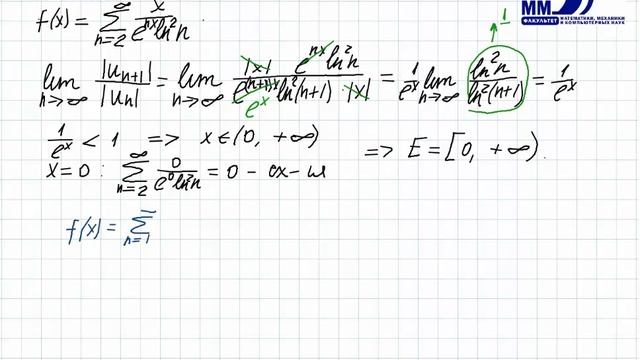 f(x) = ∑_{n=2}^{∞} x / (e^{nx} ln²n).
ММ
ФАКУЛЬТЕТ МАТЕМАТИКИ, МЕХАНИКИ И КОМПЬЮТЕРНЫХ НАУК
1
lim_{n→∞} |u_{n+1}| / |u_n| = lim_{n→∞} (|x| e^{nx} ln²n) / (e^{(n+1)x} ln²(n+1) |x|) = 1/e^x lim_{n→∞} ln²n / ln²(n+1) = 1/e^x
e^x
1/e^x < 1 => x∈(0, +∞)
=> E = [0, +∞).
x=0 : ∑_{n=2}^{∞} 0 / (e^0 ln²n) = 0 - сх-ся
f(x) = ∑_{n=1}